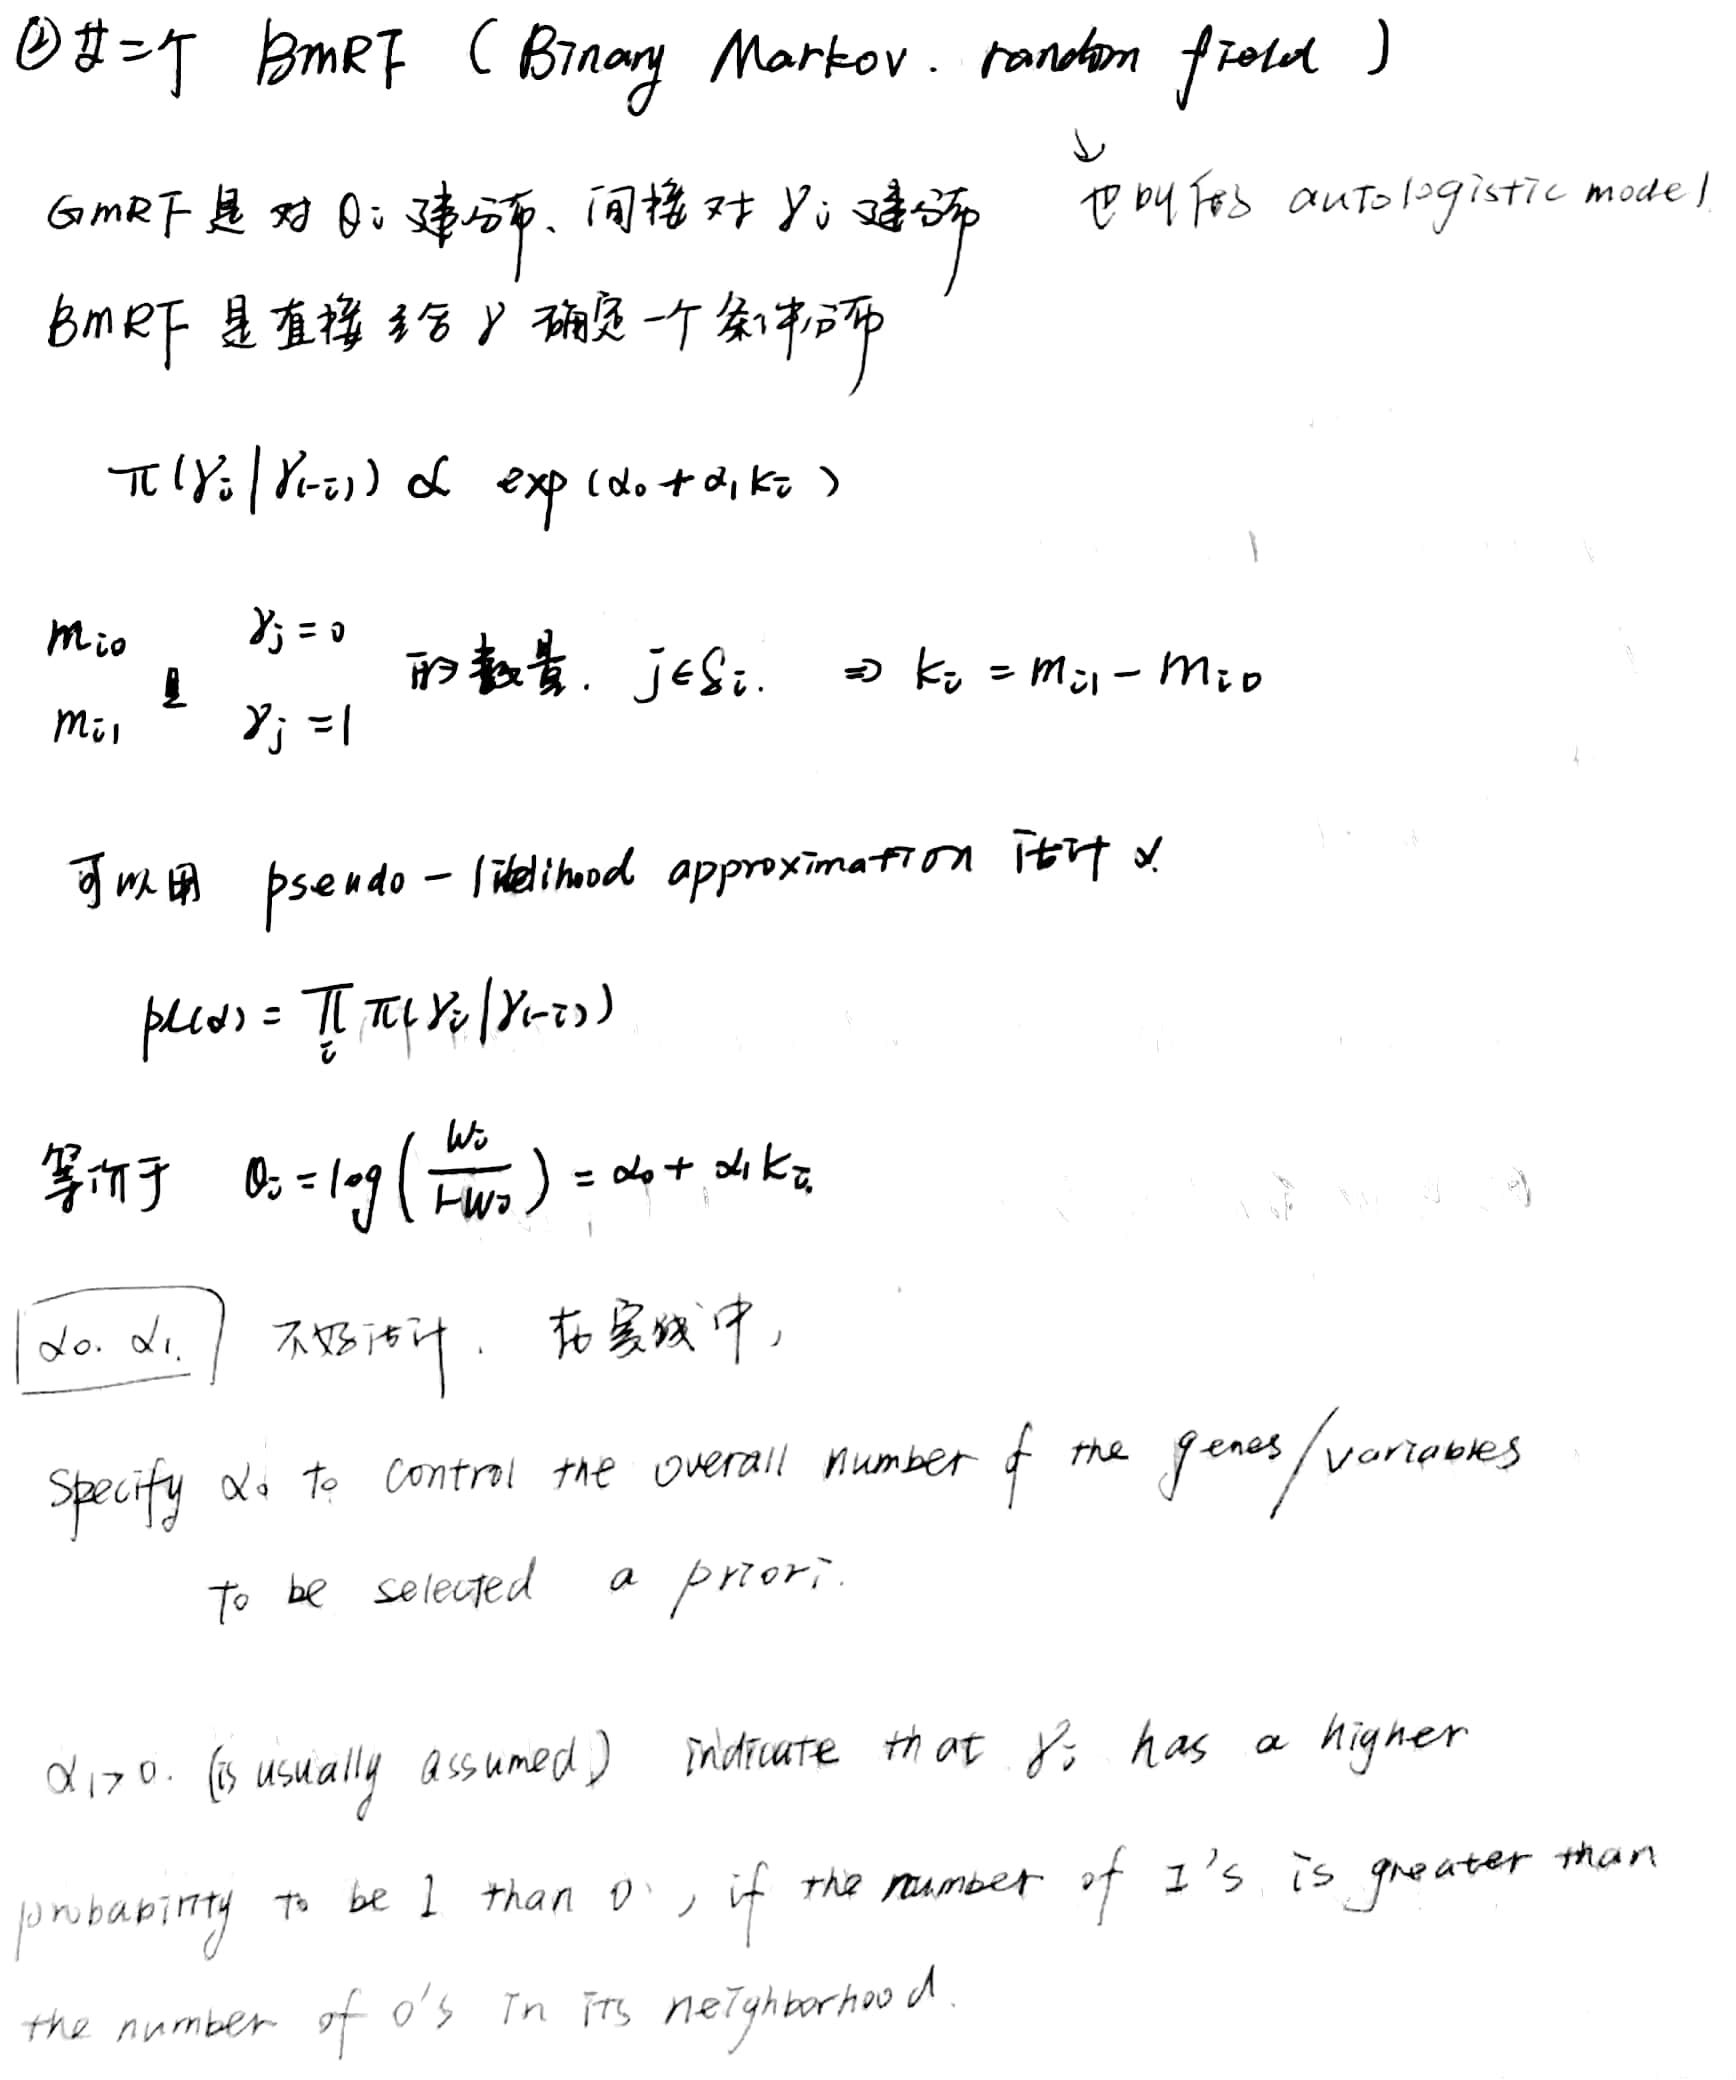 ② 第二个 BMRF ( Binary Markov. random field )
↓
GMRF 是 对 θi 建分布、间接对 γi 建分布 也叫做 autologistic model
BMRF 是直接给 γ 确定一个条件分布
π(γi | γ(-i)) ∝ exp (α0 + α1 ki )
mi0 γj = 0
是 的数量. j∈δi. ⇒ ki = mi1 - mi0
mi1 γj = 1
可以用 pseudo - likelihood approximation 估计 α.
pl(α) = ∏i π( γi | γ(-i) )
等价于 θi = log ( wi / 1-wi ) = α0 + α1 ki.
α0. α1. 不好估计. 在实践中,
Specify α0 to control the overall number of the genes/variables
to be selected a priori.
α1 > 0. (is usually assumed) indicate that γi has a higher
probability to be 1 than 0, if the number of 1's is greater than
the number of 0's in its neighborhood.